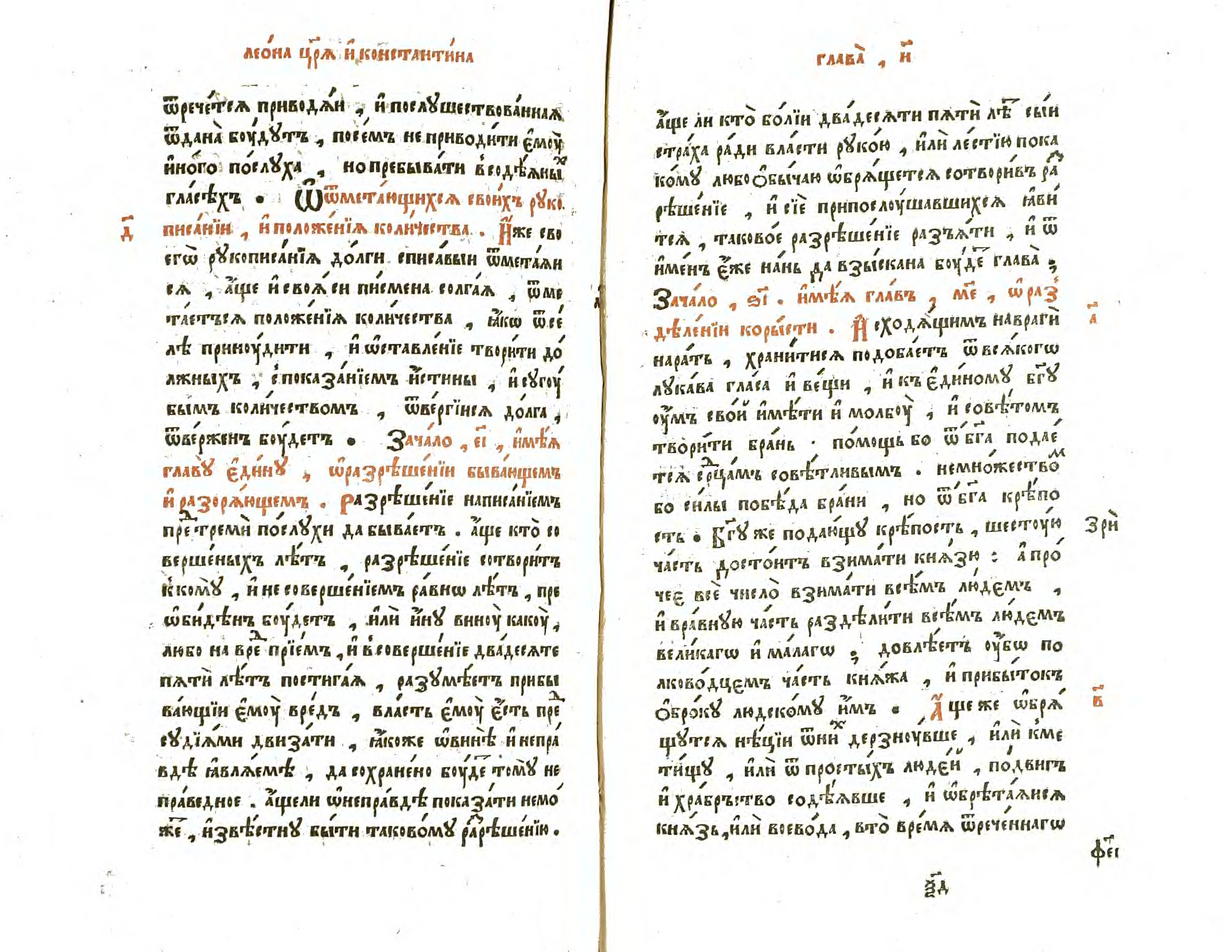 леѻ́на цр҃ѧ и҆ константи́на
ѿрече́тсѧ приводѧ́й , и҆ послꙋшествова́ннаѧ
ѿдана̀ бꙋ́дꙋтъ , посе́мъ не приводи́ти є҆мꙋ̀
и҆но́го по́слꙋха , но пребыва́ти в̾содѣ́ѧныⷯ
гласѣ́хъ . Ѿ ѿмета́ющихсѧ свои́хъ рꙋко
д҃
писа́нїи , и҆ положе́нїѧ коли́чества . И҆́же сво
егѡ̀ рꙋкописа́нїѧ до́лги списа́выи ѿмета́ѧи
сѧ , а҆́ще и҆ своѧ̀ си пи́смена солга́ѧ , ѿме
та́етъсѧ положе́нїѧ коли́чества , ꙗ҆́кѡ ѿсе́
лѣ принꙋ́дити , и҆ ѡ҆ставле́нїе твори́ти до́
лжныхъ , с̾показа́нїемъ и҆́стины , и҆ сꙋгꙋ́
бымъ коли́чествомъ , ѿве́ргїисѧ до́лга ,
ѿве́рженъ бꙋ́детъ . Зача́ло , є҃і , и҆мѣ́ѧ
главꙋ̀ є҆ди́нꙋ , ѡ҆разрѣше́нїи быва́ющемъ
и҆ разорѧ́ющемъ . Разрѣше́нїе написа́нїемъ
преⷣ треми́ по́слꙋхи да быва́етъ . а҆́ще кто̀ со
верше́ныхъ лѣ́тъ , разрѣше́нїе сотвори́тъ
к̾комꙋ̀ , и҆ не соверше́нїемъ ра́внѡ лѣ́тъ , пре
ѡ҆би́дѣнъ бꙋ́детъ , и҆лѝ и҆́нꙋ винꙋ̀ какꙋ̀ ,
любо на вреⷨ прїе́мъ , и҆ в̾соверше́нїе два́десѧте
пѧтѝ лѣ́тъ пости́гаѧ , разꙋмѣ́етъ прибы
ва́ющїи є҆мꙋ̀ вре́дъ , вла́сть є҆мꙋ̀ є҆́сть преⷣ
сꙋдїѧ́ми дви́зати , ꙗ҆́коже ѡ҆винѣ̀ и҆ непра́
вдѣ ꙗ҆влѧ́емѣ , да сохране́но бꙋ́де томꙋ̀ не
пра́ведное . а҆́щели ѡ҆непра́вдѣ показа́ти немо́
же , и҆звѣ́стнꙋ бы́ти таково́мꙋ раⷥрѣше́нїю .
глава̀ , н҃
а҆́ще ли кто̀ бо́лїи два́десѧти пѧтѝ лѣⷮ сы́и
стра́ха ра́ди вла́сти рꙋко́ю , и҆лѝ ле́стїю пока
кому любо ѻ҆бы́чаю ѡ҆брѧ́щетсѧ сотвори́въ раⷥ
рѣше́нїе , и҆ сїѐ припослꙋ́шавшихсѧ ꙗ҆ви́
тсѧ , таково́е разрѣше́нїе разъѧ́ти , и҆ ѿ
и҆ме́нъ є҆́же на́нь да взы́скана бꙋ́де глава̀ ;
Зача́ло , ѕ҃і . и҆мѣ́ѧ гла́въ , м҃е , ѡ҆ раз
дѣле́нїи коры́сти . И҆сходѧ́щимъ на враги̑
а҃
на ра́ть , храни́тисѧ подоба́етъ ѿ всѧ́когѡ
лꙋка́ва гла́са и҆ ве́щи , и҆ къ є҆ди́номꙋ бг҃ꙋ
ᲂу҆́мъ сво́й и҆мѣ́ти и҆ молбꙋ̀ , и҆ совѣ́томъ
твори́ти бра́нь · по́мощь бо ѿ бг҃а подае́
тсѧ срⷣцамъ совѣ́тливымъ . не мно́жествоⷨ
бо си́лы побѣ́да бра́ни , но ѿ бг҃а крѣ́по
сть . Бг҃ꙋ же подаю́щꙋ крѣ́пость , шестꙋ́ю
зрѝ
ча́сть досто́итъ взима́ти кнѧ́зю : а҆ про́
чее всѐ число̀ взима́ти всѣ́мъ лю́демъ ,
и҆ вра́внꙋю ча́сть раздѣли́ти всѣ́мъ лю́демъ
вели́кагѡ и҆ ма́лагѡ ; довлѣ́етъ ᲂу҆́бѡ по
лково́дцемъ ча́сть кнѧ́жа , и҆ прибы́токъ
ѻ҆бро́кꙋ людско́мꙋ и҆́мъ . А҆́ще же ѡ҆брѧ́
в҃
щꙋтсѧ нѣ́цїи ѿ ниⷯ дерзнꙋ́вше , и҆лѝ кме
ти́щꙋ , и҆лѝ ѿ просты́хъ люде́й , по́двигъ
и҆ хра́брьство содѣ́ѧвше , и҆ ѡ҆брѣта́ѧисѧ
кнѧ́зь , и҆лѝ воево́да , вто̀ вре́мѧ ѿрече́ннагѡ
ф҃еі
ѯ҃д